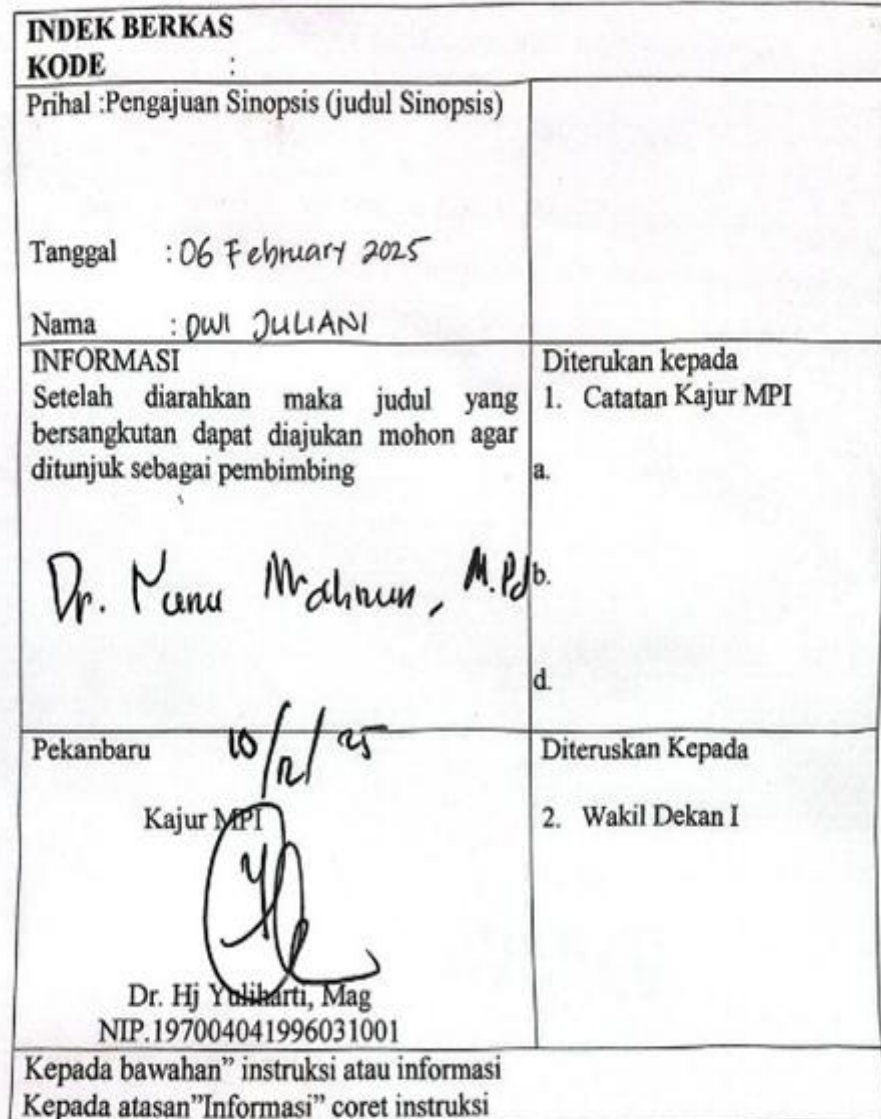 INDEK BERKAS
KODE :
Prihal :Pengajuan Sinopsis (judul Sinopsis)
Tanggal : 06 February 2025
Nama : DWI JULIANI
INFORMASI
Setelah diarahkan maka judul yang
bersangkutan dapat diajukan mohon agar
ditunjuk sebagai pembimbing
Dr. M.Pd
Diterukan kepada
1. Catatan Kajur MPI
a.
b.
d.
Pekanbaru
Kajur MPI
Dr. Hj Yuliharti, Mag
NIP.197004041996031001
Diteruskan Kepada
2. Wakil Dekan I
Kepada bawahan” instruksi atau informasi
Kepada atasan”Informasi” coret instruksi